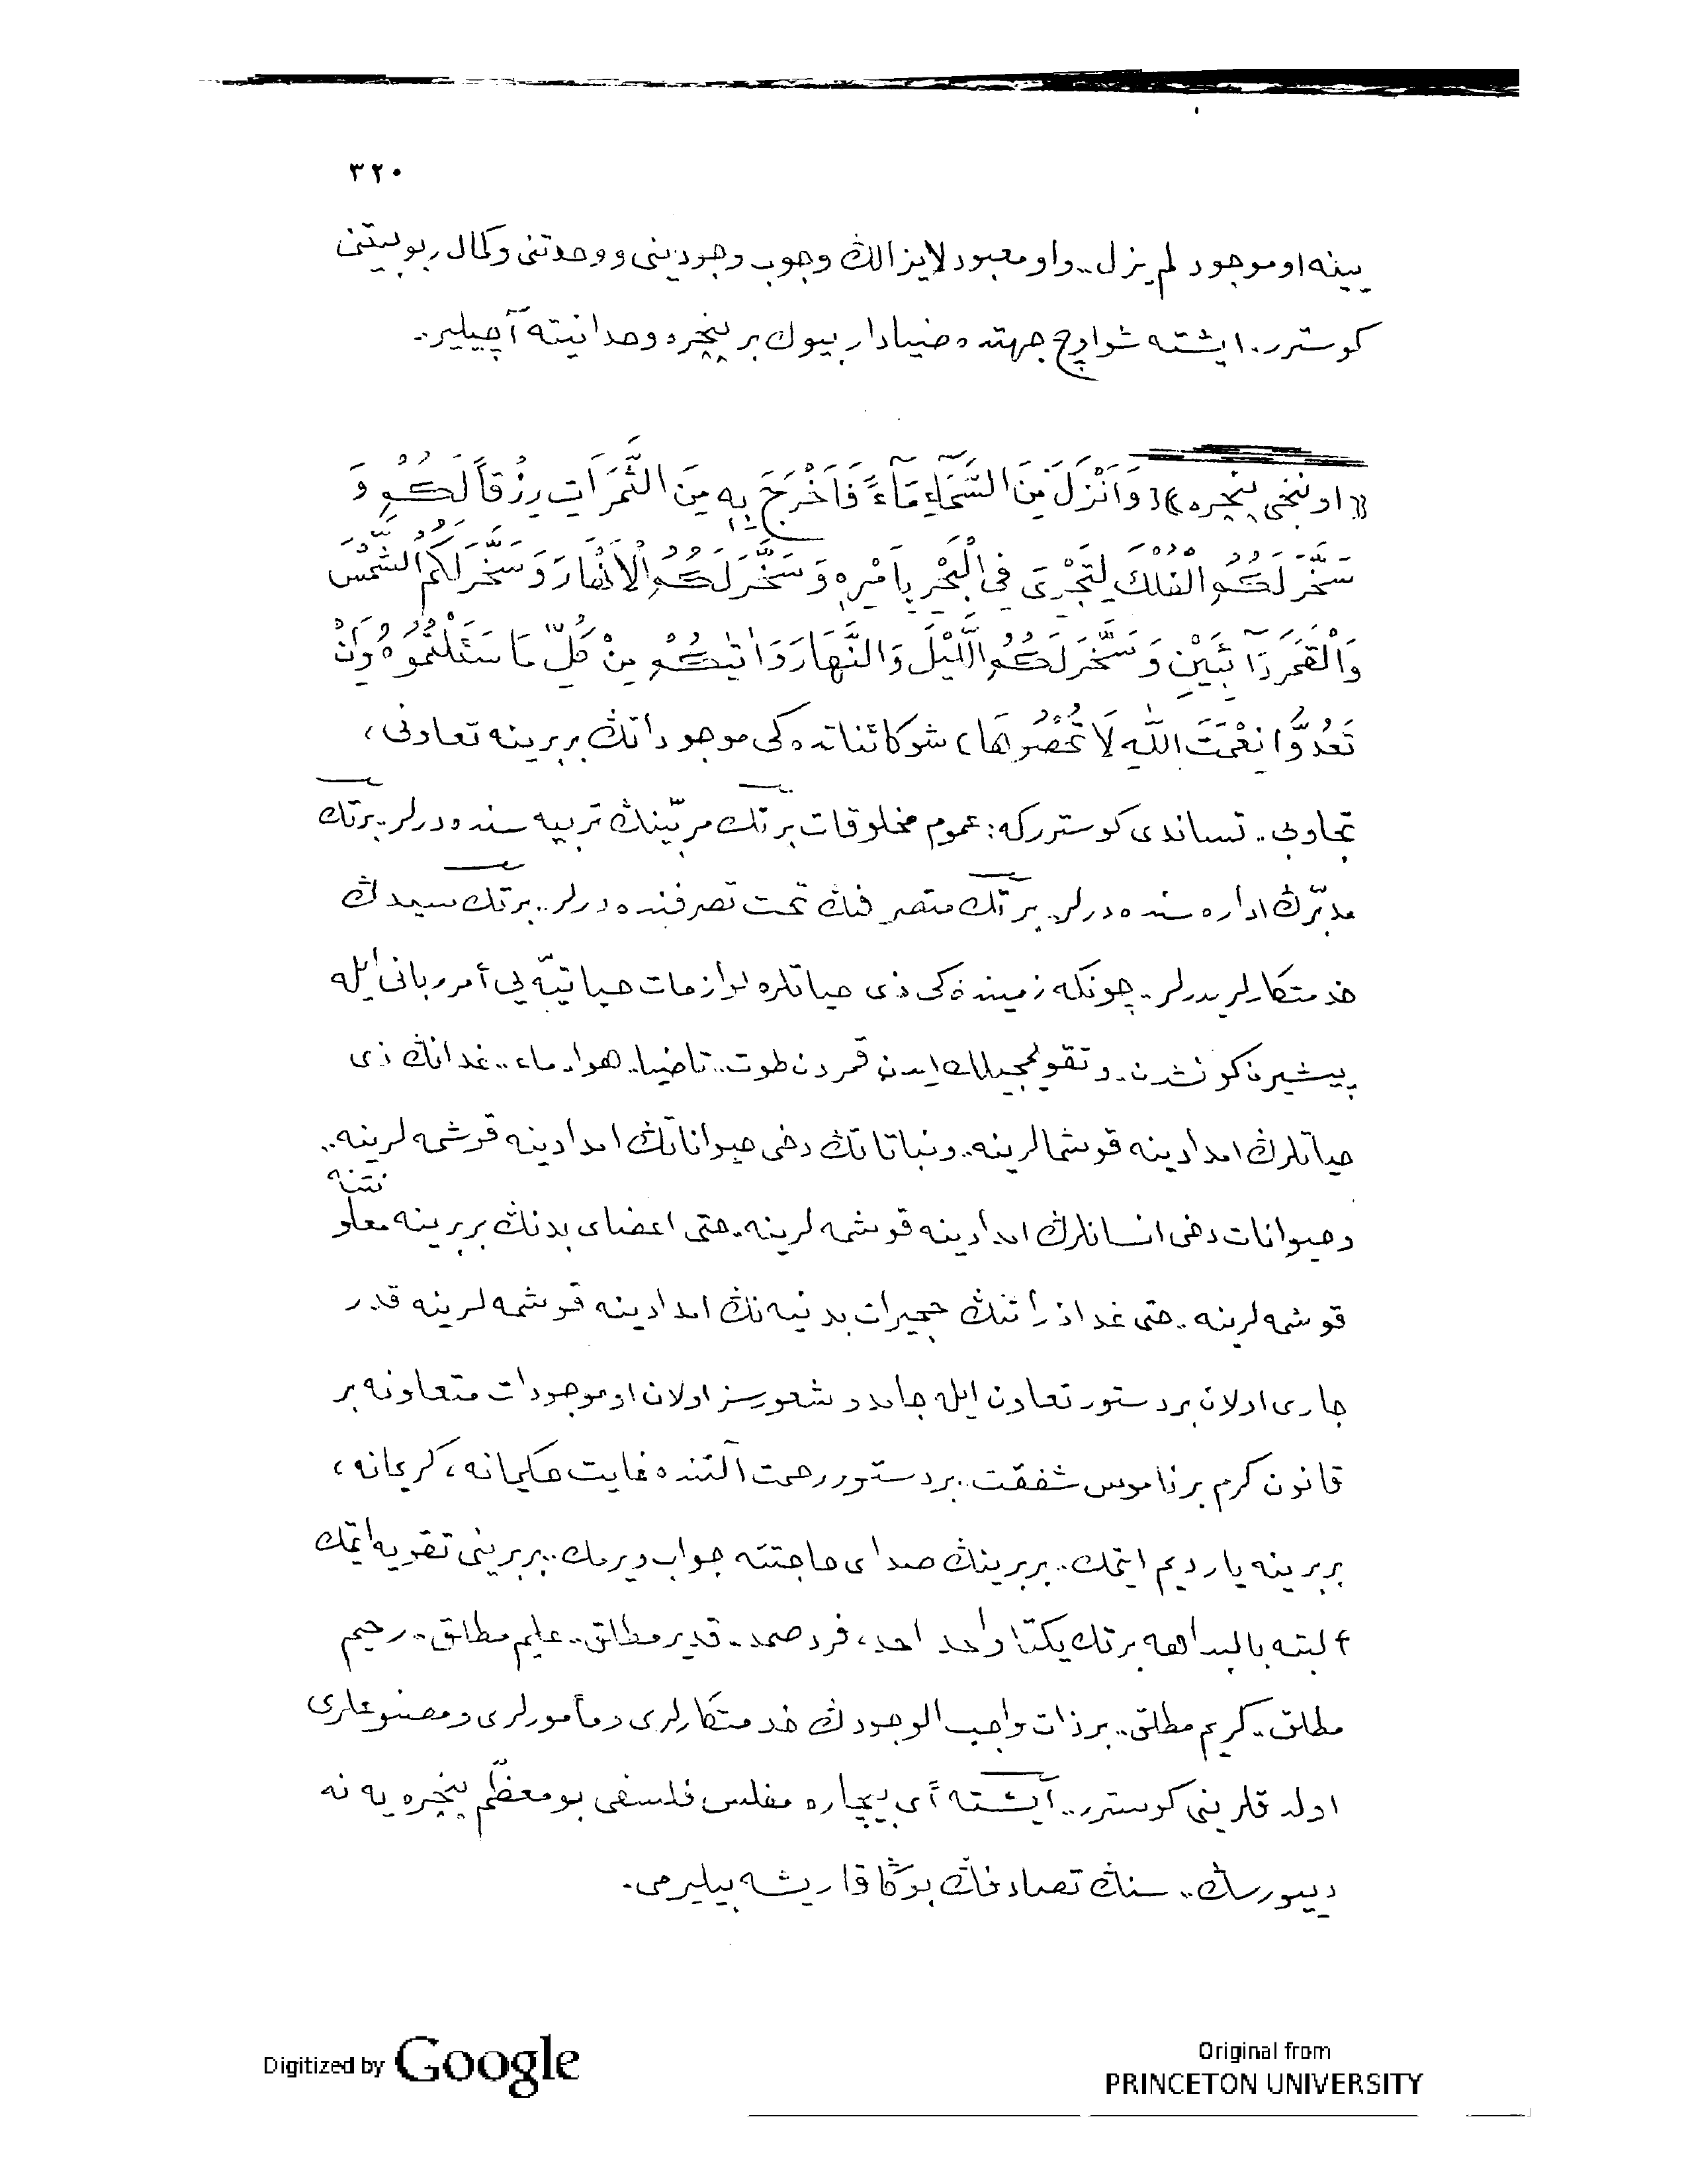 ٣٢٠
يينه او موجود لم يزل.. واو معبود لايزالڭ وجوب وجودينى و وحدتنى وكمال ربوبيتنى
كوسترر. ايشته شو اوچ جهتده ضيادار بيوك بر پنجره وحدانيته آچيلير..
﴿اوننجى پنجره﴾ ﴿وَاَنْزَلَ مِنَ السَّمَٓاءِ مَٓاءً فَاَخْرَجَ بِهِ مِنَ الثَّمَرَاتِ رِزْقًا لَكُمْ وَ
سَخَّرَ لَكُمُ الْفُلْكَ لِتَجْرِىَ فِى الْبَحْرِ بِاَمْرِهِ وَسَخَّرَ لَكُمُ الْاَنْهَارَ وَسَخَّرَ لَكُمُ الشَّمْسَ
وَالْقَمَرَ دَٓائِبَيْنِ وَسَخَّرَ لَكُمُ الَّيْلَ وَالنَّهَارَ وَاٰتٰيكُمْ مِنْ كُلِّ مَا سَئَلْتُمُوهُ وَاِنْ
تَعُدُّوا نِعْمَتَ اللّٰهِ لَا تُحْصُوهَا﴾ شو كائناتده كى موجوداتڭ بربرينه تعاونى،
تجاوبى.. تساندى كوستررکه: عموم مخلوقات برتك مربّينڭ تربيه سنده درلر.. برتك
مدبّرڭ اداره سنده درلر.. برتك متصرفڭ تحت تصرفنده درلر.. برتك سيدڭ
خدمتكارلريدرلر.. چونكه زمينده كى ذى حياتلره لوازمات حياتيّه يى أمر ربانى ايله
پيشيرن كونشدن.. و تقويمجيلك ايدن قمردن طوت.. تا ضيا.. هوا.. ماء.. غدانڭ ذى
حياتلرڭ امدادينه قوشمالرينه.. ونباتاتڭ دخى حيواناتڭ امدادينه قوشمه لرينه..
وحيوانات دخى انسانلرڭ امدادينه قوشمه لرينه.. حتى اعضاى بدنڭ بربرينه معاونتنه
قوشمه لرينه.. حتى غدا ذراتنڭ حجيرات بدنيه نڭ امدادينه قوشمه لرينه قدر
جارى اولان بر دستور تعاون ايله جامد و شعورسز اولان او موجودات متعاونه بر
قانون كرم بر ناموس شفقت.. بر دستور رحمت آلتنده غايت حكيمانه، كريمانه،
بربرينه يارديم ايتمك.. بربرينڭ صداى حاجتنه جواب ويرمك.. بربرينى تقويه ايتمك
ألبته بالبداهه برتك يكتا واحد احد، فرد صمد.. قدير مطلق.. عليم مطلق.. رحيم
مطلق.. كريم مطلق.. بر ذات واجب الوجودڭ خدمتكارلرى و مأمورلرى و مصنوعلرى
اولدقلرينى كوسترر.. ايشته أى بيچاره مفلس فلسفى بو معظّم پنجره يه نه
دييورسڭ.. سنڭ تصادفڭ بوڭا قاريشه بيليرمى.
Digitized by Google
Original from
PRINCETON UNIVERSITY